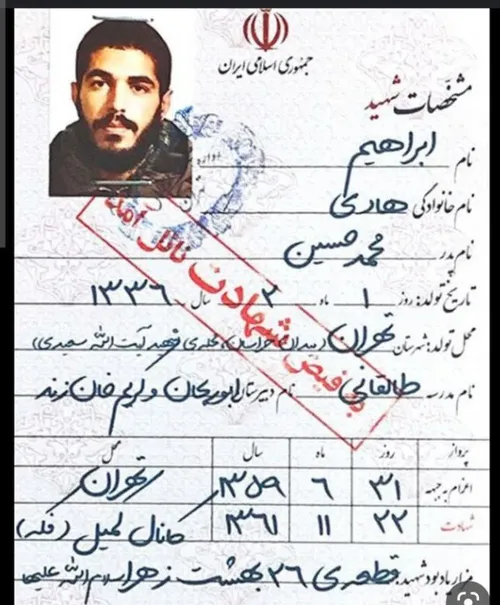 جمهوری اسلامی ایران
مشخصات شهید
نام ابراهیم
نام خانوادگی هادی
نام پدر محمد حسین
تاریخ تولد: روز ۱ ماه ۲ سال ۱۳۳۶
محل تولد: شهرستان تهران (میدان خراسان) کلدی (شهید آیت الله سعیدی)
نام مدرسه طالقانی نام دبیرستان ابوریحان و کریم خان زند
به فیض شهادت نائل آمد
پرواز روز ماه سال محل
اعزام به جبهه ۳۱ ۶ ۱۳۵۹ تهران
شهادت ۲۲ ۱۱ ۱۳۶۱ کانال کمیل (فکه)
مزار یادبود شهید: قطعه ی ۲۶ بهشت زهرا سلام الله علیها